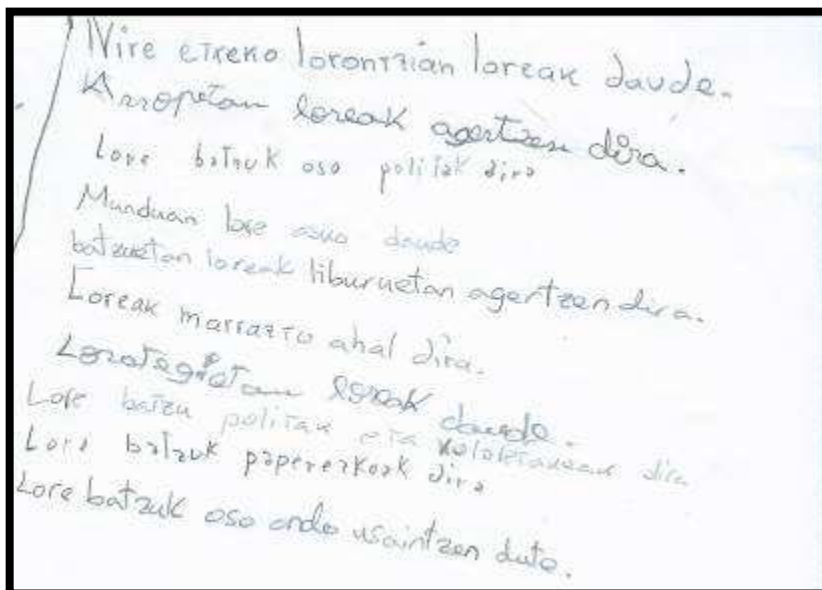 Nire etxeko lorontzian loreak daude.
Arropetan loreak agertzen dira.
Lore batzuk oso politak dira
Munduan lore asko daude
batzuetan loreak liburuetan agertzen dira.
Loreak marraztu ahal dira.
Lorategietan loreak daude.
Lore batzu politak eta koloretakoak dira
Lore batzuk paperezkoak dira
Lore batzuk oso ondo usaintzen dute.